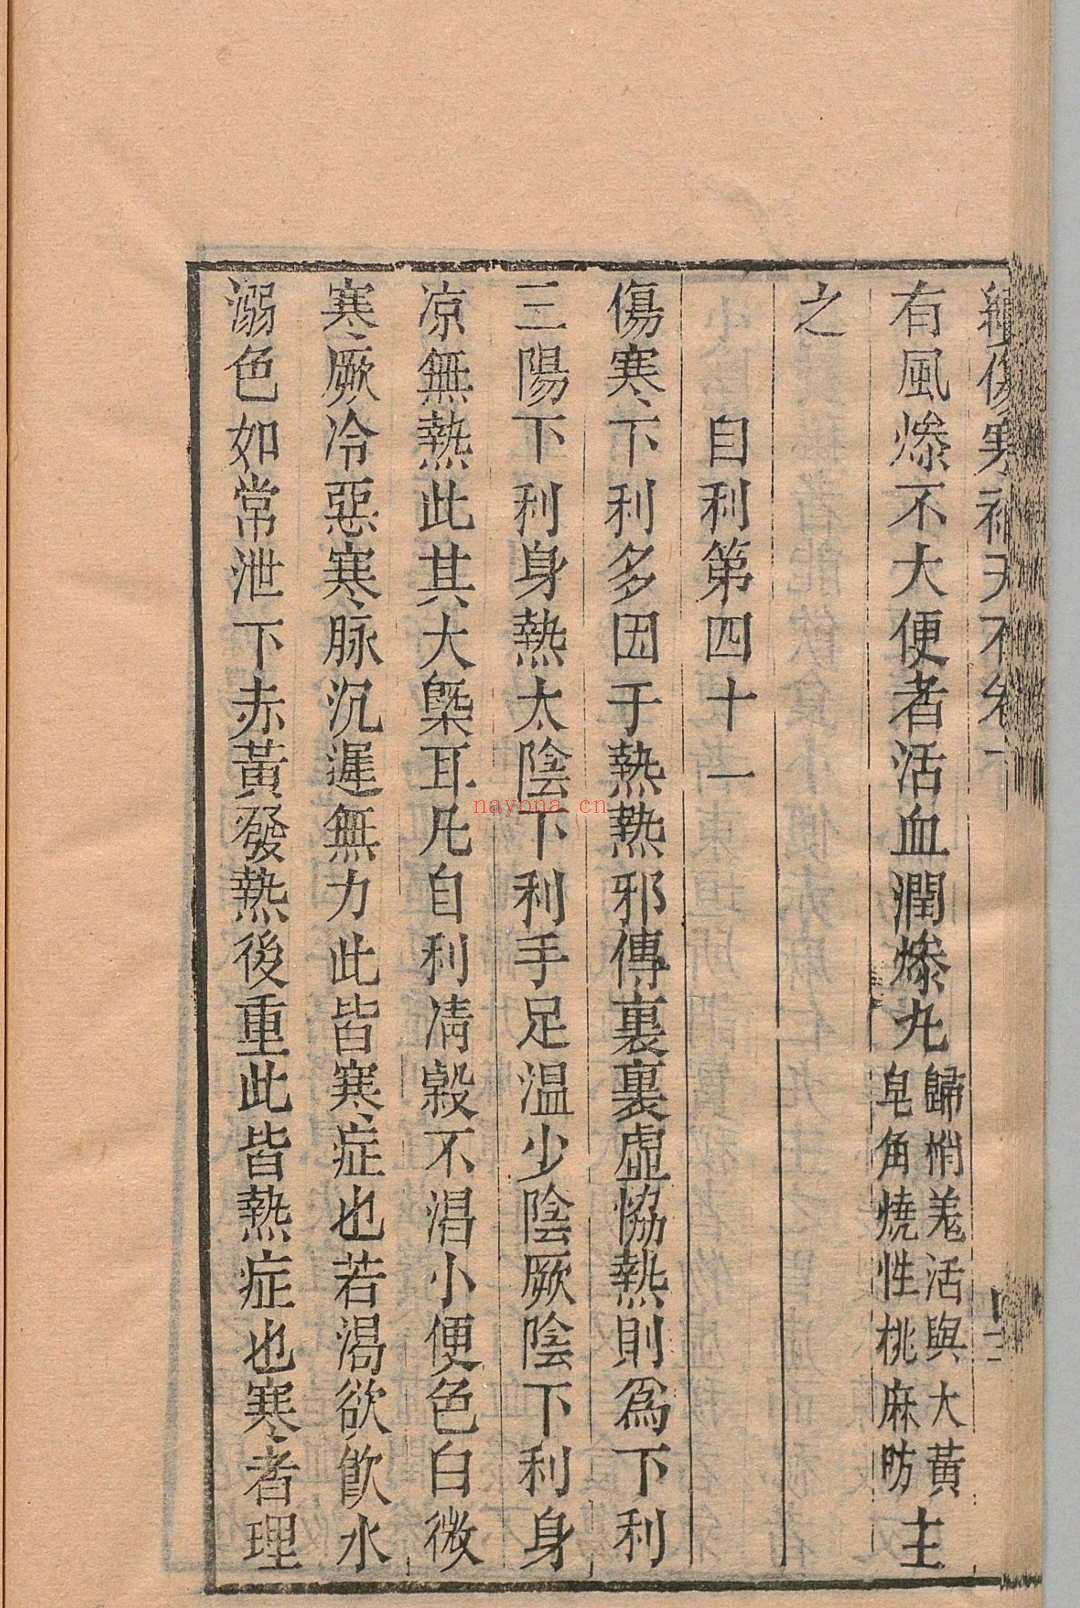 有風燥不大便者活血潤燥丸歸梢羗活與大黃皂角燒性桃麻昉主
之
自利第四十一
傷寒下利多因于熱熱邪傳裏裏虛恊熱則爲下利
三陽下利身熱太陰下利手足温少陰厥陰下利身
凉無熱此其大槩耳凡自利凊穀不渴小便色白微
寒厥冷惡寒脉沉遲無力此皆寒症也若渴欲飮水
溺色如常泄下赤黃發熱後重此皆熱症也寒者理
nayona.cn